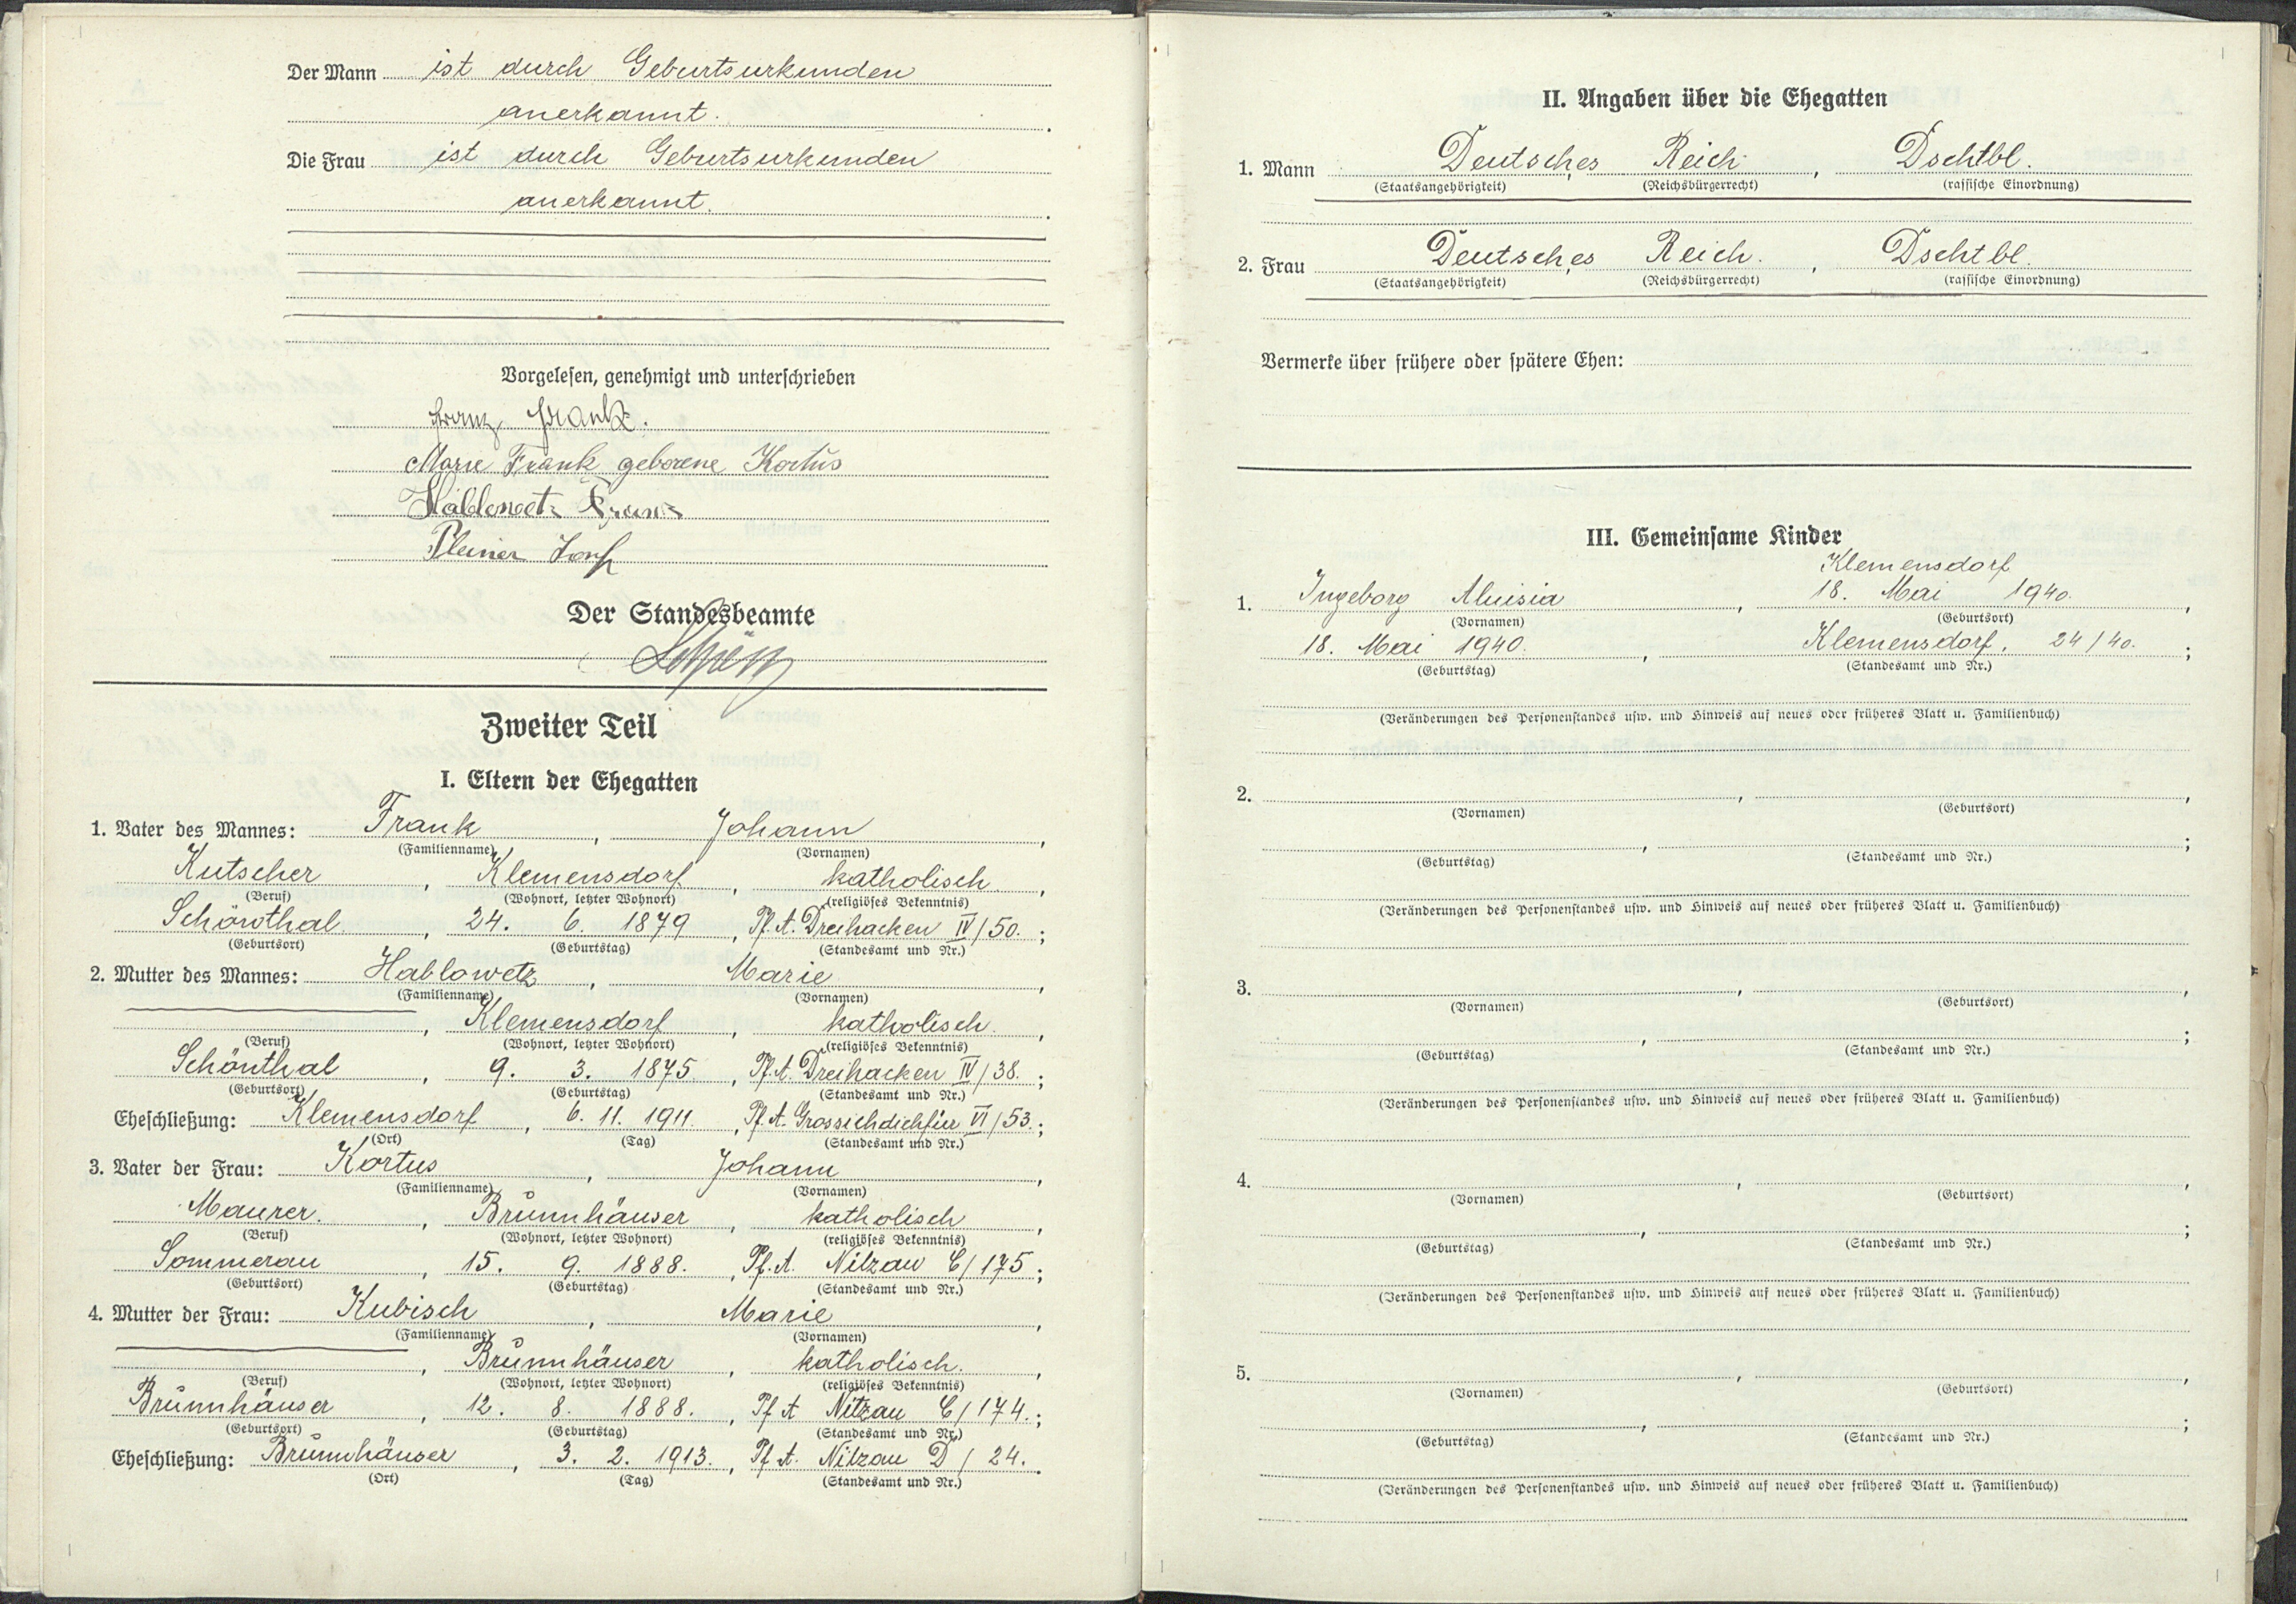 Der Mann ist durch Geburtsurkunden
anerkannt.
Die Frau ist durch Geburtsurkunden
anerkannt.
Vorgelesen, genehmigt und unterschrieben
Franz Frank.
Marie Frank geborene Kortus
Pleiner Josef
Der Standesbeamte
Zweiter Teil
I. Eltern der Ehegatten
1. Vater des Mannes: Frank, Johann,
(Familienname) (Vornamen)
Kutscher, Klemensdorf, katholisch,
(Beruf) (Wohnort, letzter Wohnort) (religiöses Bekenntnis)
Schönthal, 24. 6. 1879, Pf. A. Dreihacken IV/50.;
(Geburtsort) (Geburtstag) (Standesamt und Nr.)
2. Mutter des Mannes: Hablowetz, Marie,
(Familienname) (Vornamen)
, Klemensdorf, katholisch.,
(Beruf) (Wohnort, letzter Wohnort) (religiöses Bekenntnis)
Schönthal, 9. 3. 1875, Pf. A. Dreihacken IV/38.;
(Geburtsort) (Geburtstag) (Standesamt und Nr.)
Eheschließung: Klemensdorf, 6. 11. 1911., Pf. A. Grossichdichfür VI/53.;
(Ort) (Tag) (Standesamt und Nr.)
3. Vater der Frau: Kortus, Johann,
(Familienname) (Vornamen)
Maurer., Brünnhäuser, katholisch,
(Beruf) (Wohnort, letzter Wohnort) (religiöses Bekenntnis)
Sommerau, 15. 9. 1888., Pf. A. Nitzau C/175;
(Geburtsort) (Geburtstag) (Standesamt und Nr.)
4. Mutter der Frau: Kubisch, Marie,
(Familienname) (Vornamen)
, Brünnhäuser, katholisch.,
(Beruf) (Wohnort, letzter Wohnort) (religiöses Bekenntnis)
Brünnhäuser, 12. 8. 1888., Pf. A Nitzau C/174.;
(Geburtsort) (Geburtstag) (Standesamt und Nr.)
Eheschließung: Brünnhäuser, 3. 2. 1913., Pf. A. Nitzau D/24.
(Ort) (Tag) (Standesamt und Nr.)
II. Angaben über die Ehegatten
1. Mann Deutsches Reich, Dschtbl.
(Staatsangehörigkeit) (Reichsbürgerrecht) (rassische Einordnung)
2. Frau Deutsches Reich., Dschtbl.
(Staatsangehörigkeit) (Reichsbürgerrecht) (rassische Einordnung)
Vermerke über frühere oder spätere Ehen:
III. Gemeinsame Kinder
Klemensdorf
1. Ingeborg Aluisia, 18. Mai 1940.,
(Vornamen) (Geburtsort)
18. Mai 1940., Klemensdorf, 24/40.;
(Geburtstag) (Standesamt und Nr.)
(Veränderungen des Personenstandes usw. und Hinweis auf neues oder früheres Blatt u. Familienbuch)
2. , ,
(Vornamen) (Geburtsort)
, ;
(Geburtstag) (Standesamt und Nr.)
(Veränderungen des Personenstandes usw. und Hinweis auf neues oder früheres Blatt u. Familienbuch)
3. , ,
(Vornamen) (Geburtsort)
, ;
(Geburtstag) (Standesamt und Nr.)
(Veränderungen des Personenstandes usw. und Hinweis auf neues oder früheres Blatt u. Familienbuch)
4. , ,
(Vornamen) (Geburtsort)
, ;
(Geburtstag) (Standesamt und Nr.)
(Veränderungen des Personenstandes usw. und Hinweis auf neues oder früheres Blatt u. Familienbuch)
5. , ,
(Vornamen) (Geburtsort)
, ;
(Geburtstag) (Standesamt und Nr.)
(Veränderungen des Personenstandes usw. und Hinweis auf neues oder früheres Blatt u. Familienbuch)